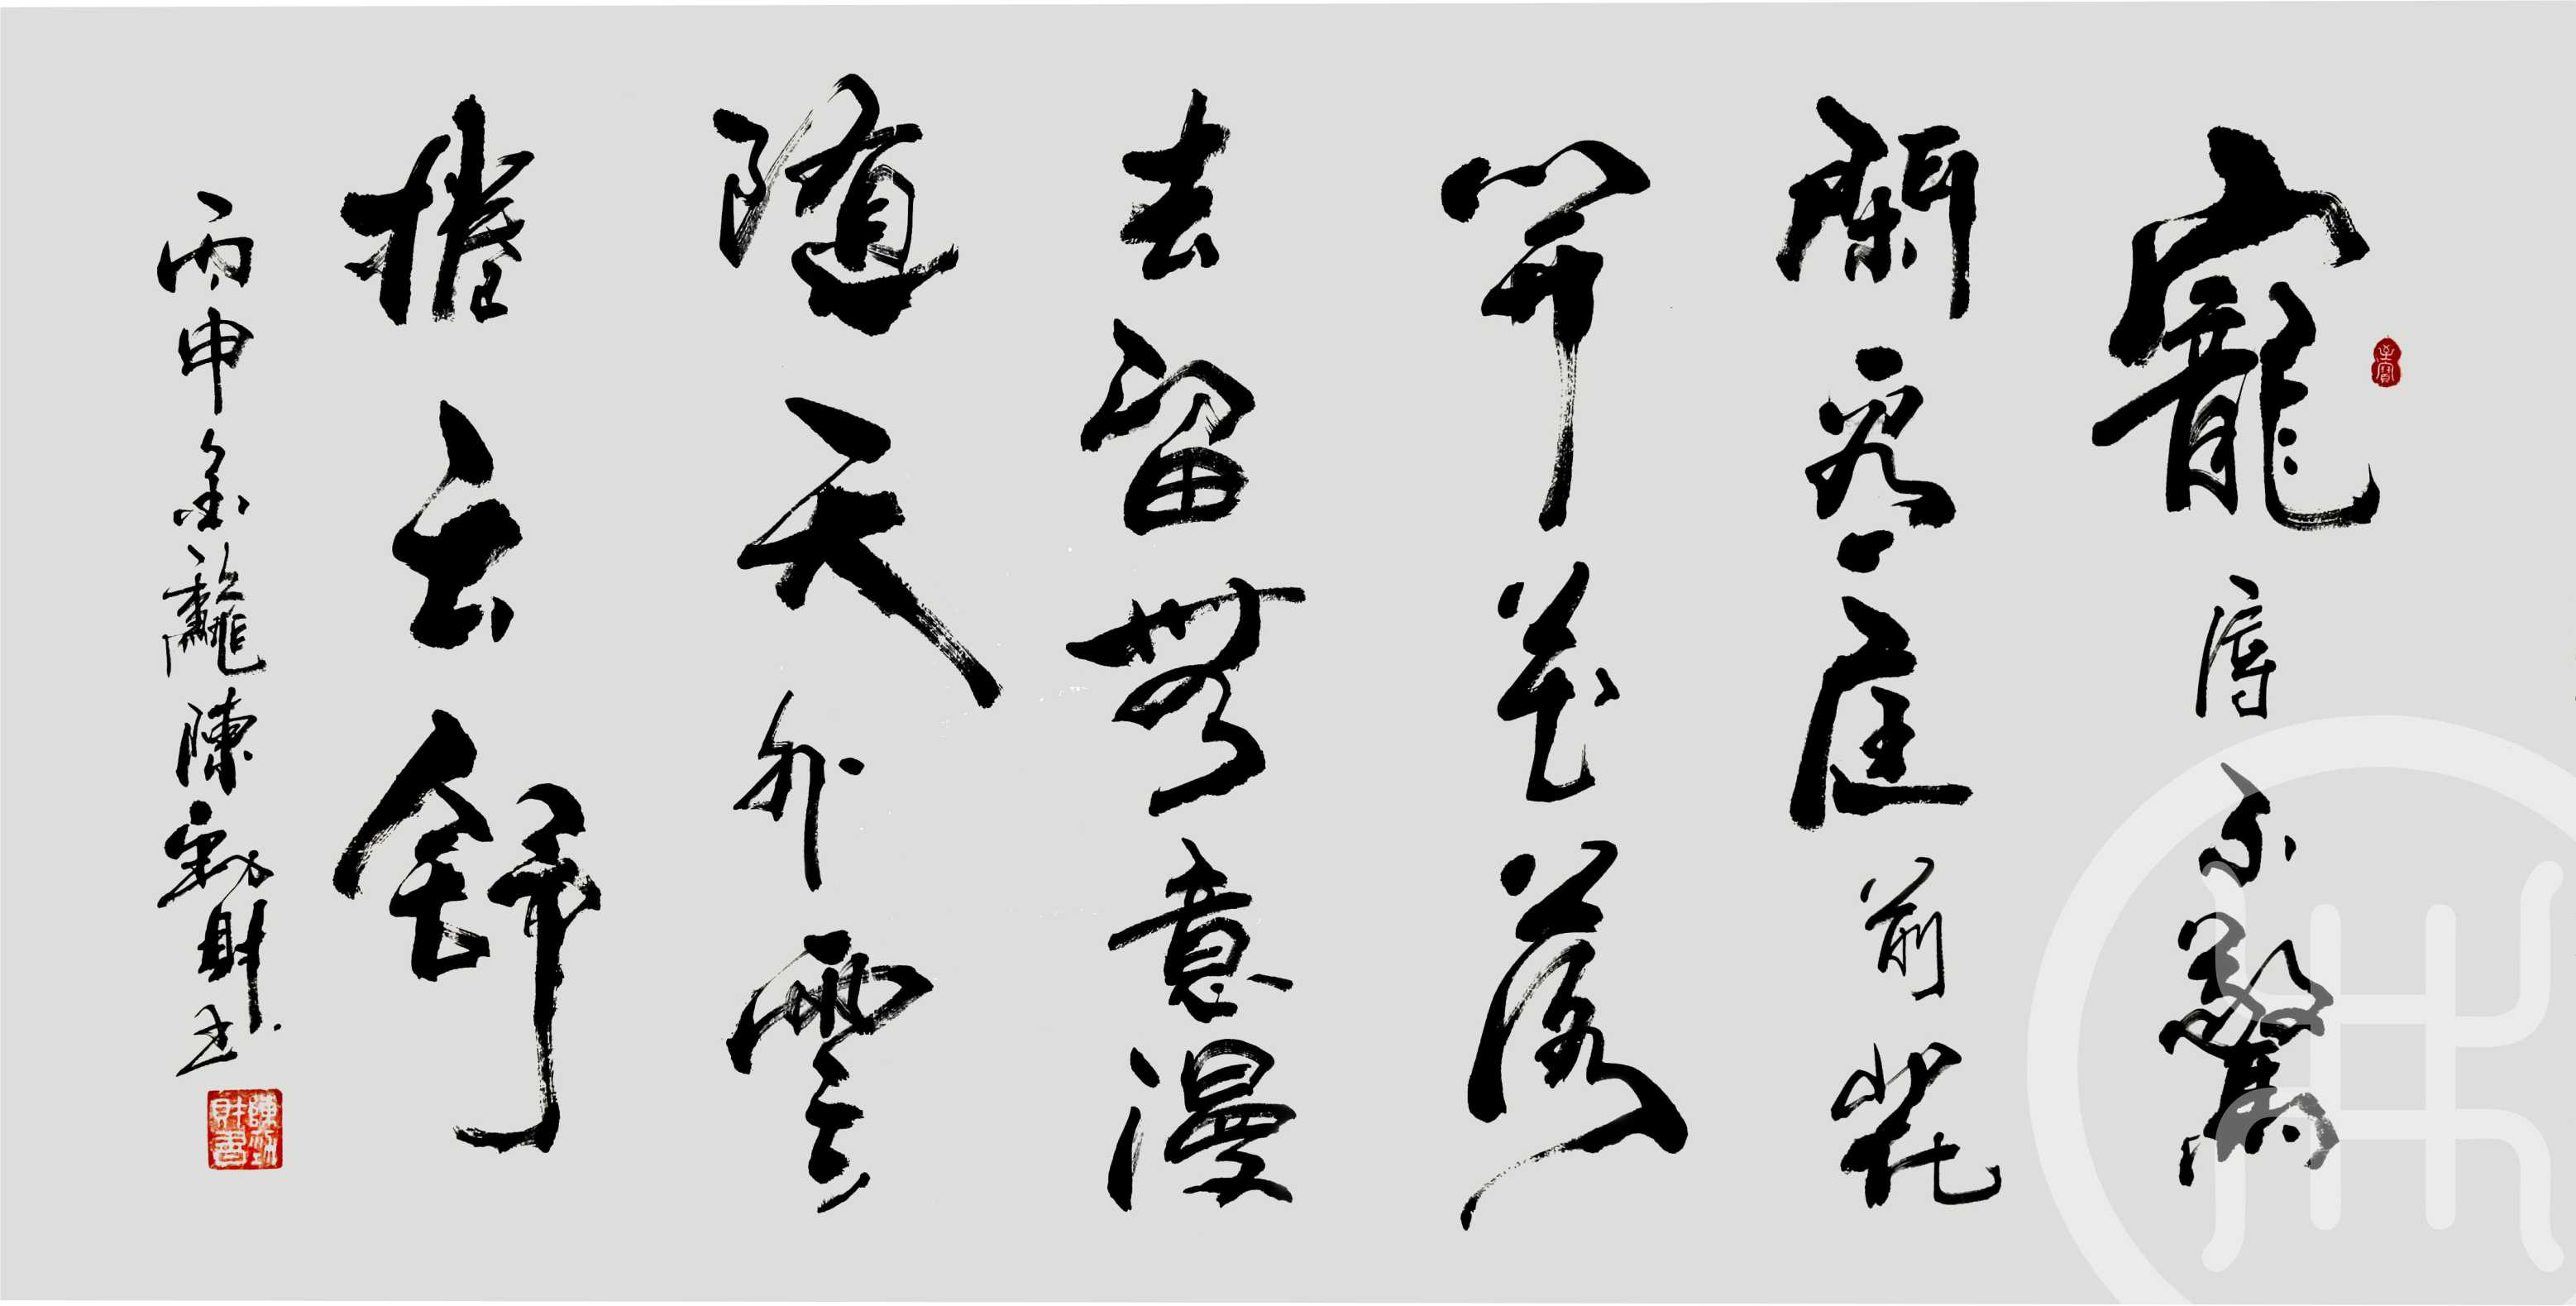 寵辱不驚
閑看庭前花
開花落
去留無意漫
隨天外雲
捲云舒
丙申金龝陳勁財书
陳勁財書